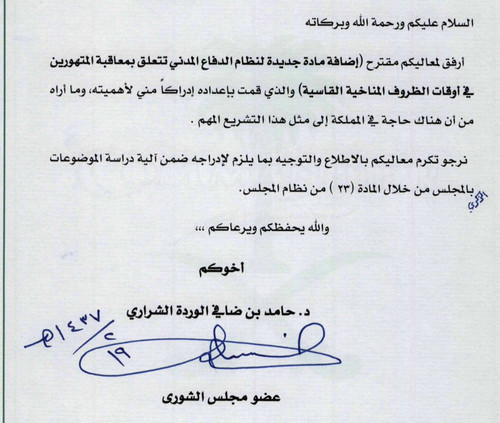 السلام عليكم ورحمة الله وبركاته
أرفق لمعاليكم مقترح (إضافة مادة جديدة لنظام الدفاع المدني تتعلق بمعاقبة المتهورين
في أوقات الظروف المناخية القاسية) والذي قمت بإعداده إدراكاً مني لأهميته، وما أراه
من أن هناك حاجة في المملكة إلى مثل هذا التشريع المهم .
نرجو تكرم معاليكم بالاطلاع والتوجيه بما يلزم لإدراجه ضمن آلية دراسة الموضوعات
بالمجلس من خلال المادة (٢٣ ) من نظام المجلس.
والله يحفظكم ويرعاكم ،،،
أخوكم
د. حامد بن ضافي الوردة الشراري
١٤٣٧هـ/
٢/
١٩
عضو مجلس الشورى